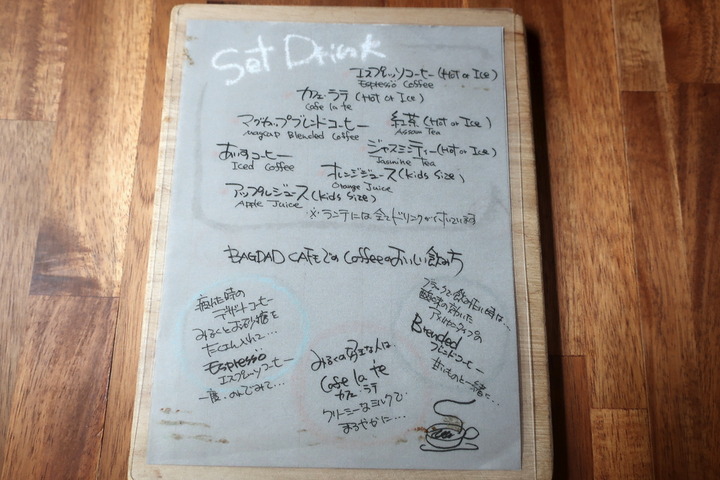 Set Drink
エスプレッソコーヒー (Hot or Ice)
Espresso Coffee
カフェ・ラテ (Hot or Ice)
Cafe la te
マグカップブレンドコーヒー
Magcup Blended Coffee
紅茶 (Hot or Ice)
Assam Tea
あいすコーヒー
Iced Coffee
ジャスミンティー (Hot or Ice)
Jasmine Tea
オレンジジュース (kids size)
Orange Juice
アップルジュース (kids size)
Apple Juice
※ランチには全てドリンクが付いています
BAGDAD CAFEでの Coffeeのおいしい飲み方
疲れた時の
デザートコーヒー
みるくとお砂糖を
たくさん入れて…
Espresso
エスプレッソコーヒー
一度、のんでみて…
みるくの好きな人は、
Cafe la te
カフェ・ラテ
クリーミーなミルクで
まろやかに…
ブラックで飲みたい時は…
酸味の効いた
アメリカンタイプの
Blended
ブレンドコーヒー
甘いものと一緒に…